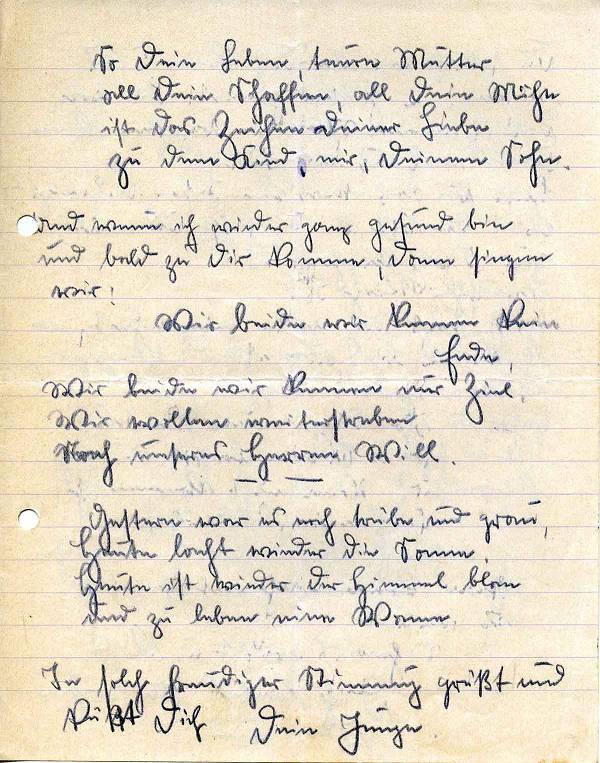 So Dein Leben, teure Mutter,
all Dein Schaffen, all Dein Mühn
ist das Zeichen Deiner Liebe
zu dem Kind, mir, Deinem Sohn.
Und wenn ich wieder ganz gesund bin
und bald zu Dir komme, dann singen
wir!
Wir beide wir kennen kein
Ende,
Wir beide wir kennen nur Ziel,
Wir wollen weiterstreben
Nach unseres Herren Will.
Gestern war es noch trübe und grau,
Heute lacht wieder die Sonne,
Heute ist wieder der Himmel blau
und zu leben eine Wonne.
In solch freudiger Stimmung grüßt und
küßt Dich Dein Junge.